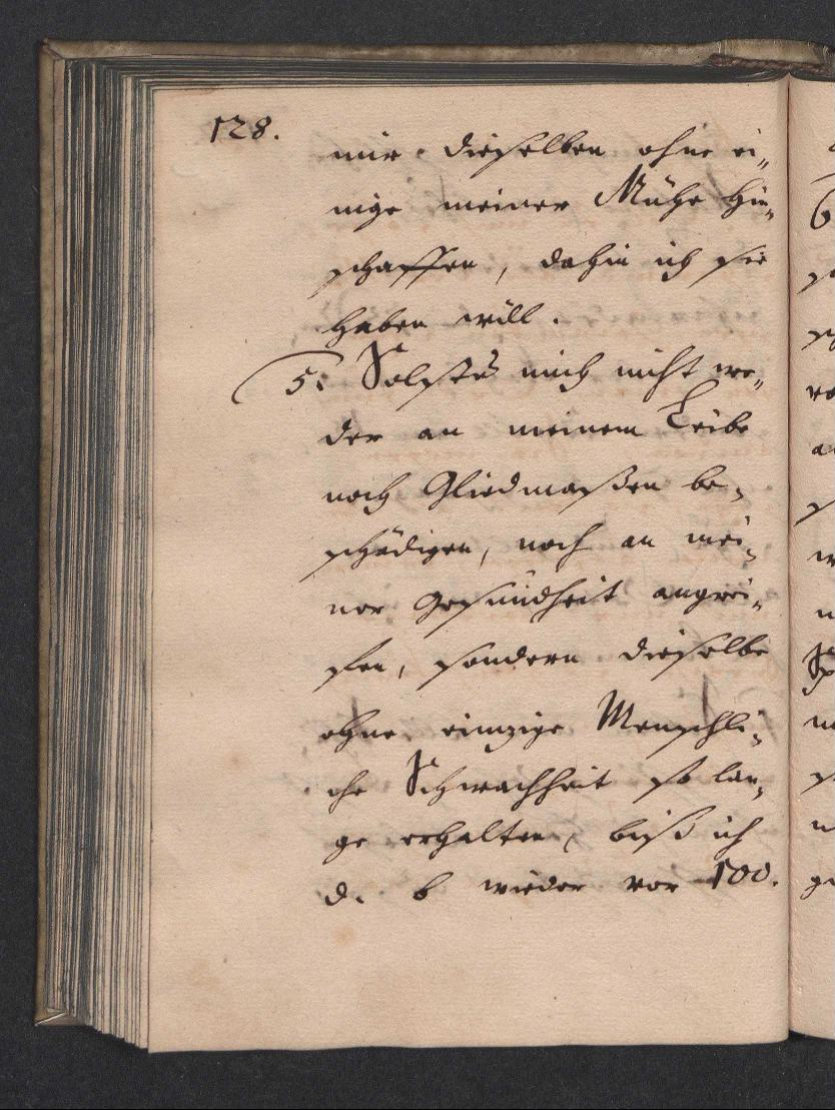 128.
mir dieselben ohne ei„
nige meiner Mühe hin„
schaffen, dahin ich sie
haben will.
5. Solstu mich nicht we„
der an meinem Leibe
noch Gliedmaßen be„
schädigen, noch an mei„
ner Gesundheit angrei„
fen, sondern dieselbe
ohne eintzige Menschli„
che Schwachheit so lan„
ge erhalten, biß ich
d. b wieder vor 100.